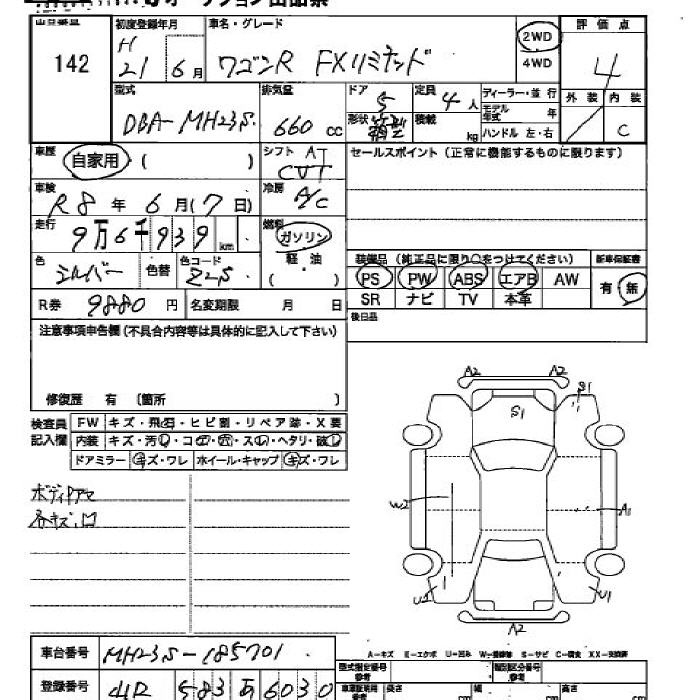 出品番号 初度登録年月 車名・グレード 評価点
142 H 21 6月 ワゴンR FXリミテッド 2WD 4WD 4
型式 排気量 ドア 定員 ディーラー・並行 外装 内装
DBA-MH23S. 660 cc 5 4人 モデル年式 年
形状 箱型 積載 kg ハンドル 左・右 C
車歴 自家用 ( ) シフト AT CVT セールスポイント (正常に機能するものに限ります)
車検 R8年 6月(7日) 冷房 A/C
走行 9万6千939km 燃料 ガソリン
色 シルバー 色替 色コード Z2S 軽油 ( )
装備品 (純正品に限り○をつけてください) 新車保証書
PS PW ABS エアB AW 有 無
SR ナビ TV 本革
R券 9880円 名変期限 月 日 後日品
注意事項申告欄(不具合内容等は具体的に記入して下さい)
修復歴 有 〔箇所 〕
検査員記入欄 FW キズ・飛石・ヒビ割・リペア跡・X要
内装 キズ・汚れ・コゲ・穴・スレ・ヘタリ・破れ
ドアミラー キズ・ワレ ホイール・キャップ キズ・ワレ
ボディドアマ
各キズ,凹
A2 A2
S1 S1
W2 A1
U1 U1
A2
A-キズ E-エクボ U-凹み W-補修跡 S-サビ C-腐食 XX-交換済
車台番号 MH23S-185701 型式指定番号 参考 類別区分番号 参考
登録番号 583 あ 6030 長さ cm 幅 cm 高さ cm